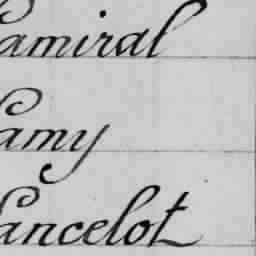 Lamiral
Lamy
Lancelot